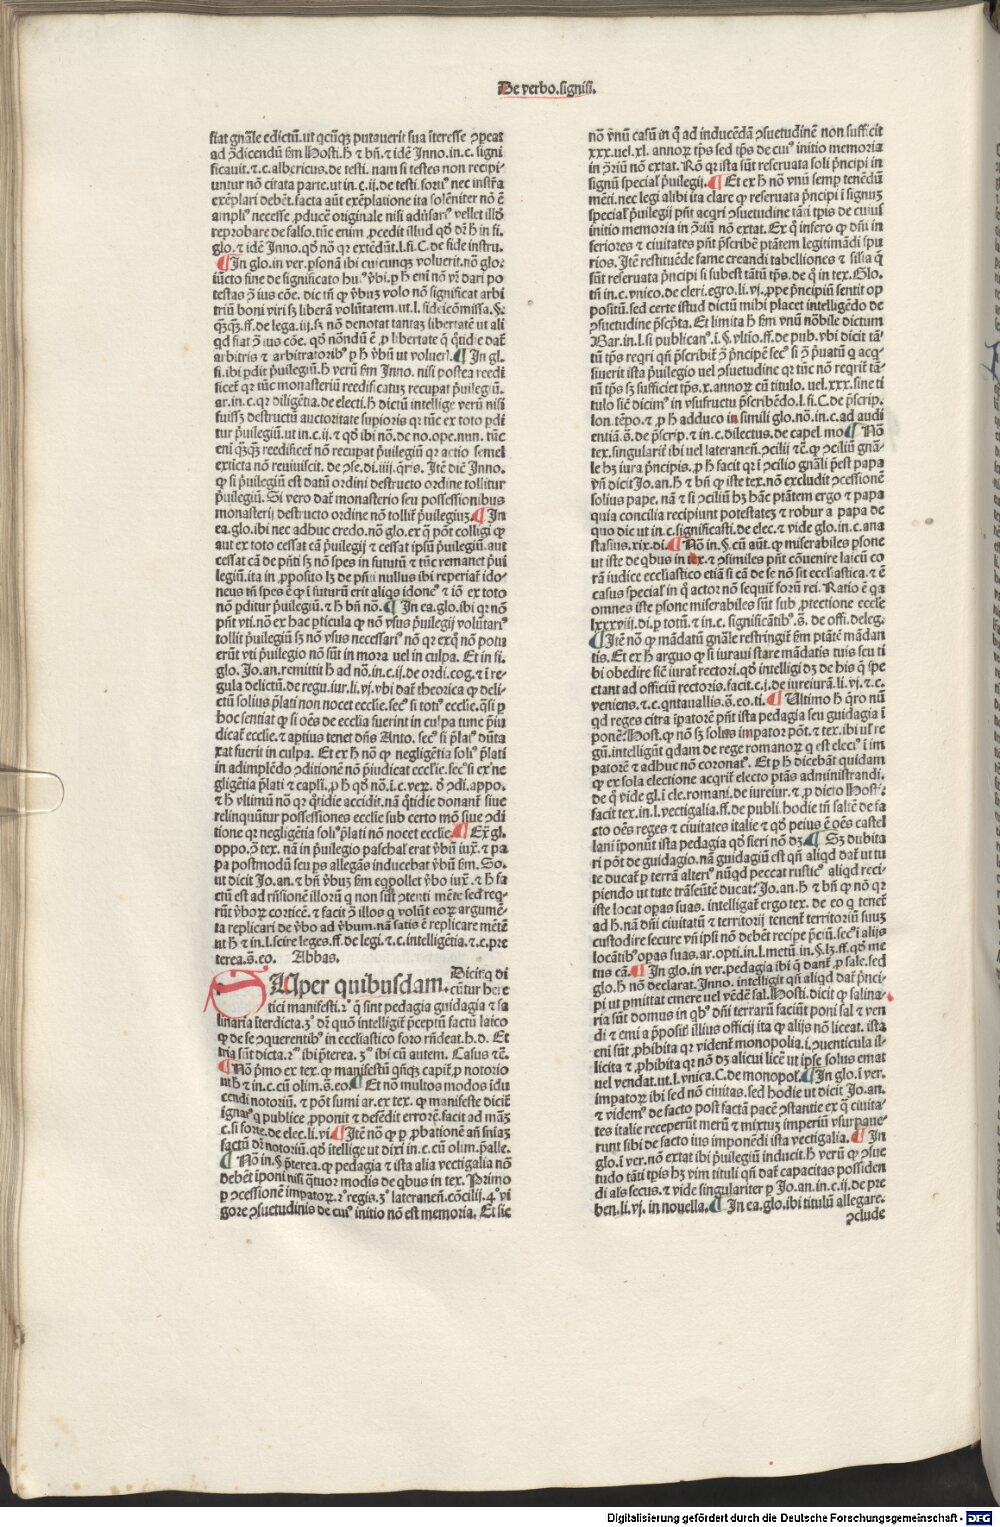 De verbo.signifi.
fiat gñale edictū.ut qcūqꝫ putauerit sua īteresse ꝯpeat
ad ꝯdicendū ẜm Hosti.h̄ ⁊ bñ.⁊ idē Inno.in.c.signi
ficauit.⁊.c.albericus.de testi. nam si testes non recipi-
untur nō citata parte.ut in.c.ij.de testi.
exēplari debēt.facta aūt exēplatione ita solēniter nō ē
ampliꝰ necesse ꝓducē originale nisi
reprobare de falso.tūc enim ꝓcedit illud qď dr̄ h̄ in fi.
glo.⁊ idē Inno.qď nō qr extēdūt.l.fi.C.de fide instru.
¶In glo.in ver.psonā ibi cuicunqꝫ voluerit.nō glo
testas ꝯ ius cōe.
arbitris ⁊ arbitratoribꝰ p h̄ ybū ut voluerī.¶In gl.
fi.ibi ꝑdit p̄uilegiū.h̄ verū ẜm Inno. nisi postea reedi
ficeť qr tūc monasteriū reedificatuꝫ recupat p̄uilegiū.
ar.in.c.qr diligētia.de electi.h̄ dictū intellige verū nisi
fuissꝫ destructū auctoritate supioris qr tūc ex toto ꝑdi
tur p̄uilegiū.ut in.c.ij.⁊ qď ibi nō.de no.ope.nun. tūc
eni qꝫqꝫ reedificeť nō recupat p̄uilegiū qr actio semel
extīcta nō reuiuiscit.
ꝙ si p̄uilegiū est datū ordini destructo ordine tollitur
p̄uilegiū. Si vero dať monasterio seu possessionibus
monasterij destructo ordine nō tolliť p̄uilegiuꝫ.¶In
ea.glo.ibi nec adhuc credo.nō glo.ex q̄ pōt colligi ꝙ
aut ex toto cessat cā p̄uilegij ⁊ cessat ipsū p̄uilegiū.aut
cessat cā de p̄nti sꝫ nō spes in fututū ⁊ tūc remanet p̄ui
legiū.ita in ꝓposito lꝫ de p̄nti nullus ibi reperiať ido-
neus tñ spes ē ꝙ ī futurū erit aliqs idoneꝰ ⁊ iō ex toto
nō ꝑditur p̄uilegiū.⁊ h̄ bñ nō.¶In ea.glo.ibi qr nō
pñt vti.nō ex hac ꝑticula ꝙ nō vsus p̄uilegij volūtariꝰ
tollit p̄uilegiū sꝫ nō vsus necessariꝰ
erūt vti p̄uilegio nō sūt in mora uel in culpa. Et in fi.
glo.Jo.an.remittit h̄ ad nō.in.c.ij.de ordi.cog.⁊ ī re-
gula delictū.de regu.iur.li.vj.vbi dať theorica ꝙ deli-
ctū solius p̄lati non nocet ecclie.secꝰ si totiꝰ ecclie.q̄si ꝑ
hoc sentiat ꝙ si oēs de ecclia fuerint in culpa tunc p̄iu
dicať ecclie.⁊ aptius tenet dñs Anto. secꝰ si p̄latꝰ dūta
xat fuerit in culpa. Et ex h̄ nō ꝙ negligētia soliꝰ p̄lati
in adimplēdo ꝯditionē nō p̄iudicat ecclie.secꝰ si ex ne
gligētia p̄lati ⁊ capli.
⁊ h̄ vltimū nō qr q̄tidie accidit.nā q̄tidie donanť siue
relinquūtur possessiones ecclie sub certo mō siue ꝯdi
tione qr negligētia soliꝰ p̄lati nō nocet ecclie.¶Ex gl.
oppo.ꝯ tex. nā in p̄uilegio paschal erat ybū iux.⁊ pa
pa postmodū seu ps allegās inducebat ybū ẜm. So.
ut dicit Jo.an.⁊ bñ ybuꝫ ẜm eqpollet ybo iux.⁊ h̄ fa
cit est ad rñsionē illorū q non sūt ꝯtenti mēte sed req-
rūt yboꝝ corticē.⁊ facit ꝯ illos q volūt eoꝝ argumē-
ta replicari de ybo ad ybum.nā satis ē replicare mētē
ut h̄ ⁊ in.l.scire leges.ff.de legi.⁊.c.intelligētia.⁊.c.pre
terea.s̄.eo. Abbas.
SUper quibusdam. Dicitꝰq di
cūtur here
tici manifesti.2ꝰ q̄ sint pedagia guidagia ⁊ sa
linaria īterdicta.3ꝰ dr̄ quō intelligiť p̄ceptū factū laico
ꝙ de se ꝯquerentibꝰ in ecclīastico foro rñdeat.h.d. Et
tria sūt dicta.2m̄ ibi p̄terea.3m̄ ibi cū autem. Casus ⁊c̄.
¶Nō p̄mo ex tex.ꝙ manifestū qñqꝫ capiť ꝓ notorio
ut h̄ ⁊ in.c.cū olim.s̄.eo.¶Et nō multos modos īdu
cendi notoriū.⁊ pōt sumi ar.ex tex.ꝙ manifeste diciť
ignarꝰ q publice ꝓponit ⁊ defēdit errorē.facit ad mā
c.si forte.de elec.li.vi.¶Itē nō ꝙ p ꝓbationē añ sniaꝫ
factū dr̄ notoriū.qď ītellige ut dixi in.c.cū olim.p̄alle.
¶Nō in.§.p̄terea.ꝙ pedagia ⁊ ista alia vectigalia nō
debēt īponi nisi q̄tuor modis de qbus in tex. Primo
p ꝯcessionē impatoꝝ.2ꝰ regis.3ꝰ lateraneñ.cōcilij.4ꝰ vi
gore ꝯsuetudinis de cuiꝰ initio nō est memoria. Et sic
nō ynū casū in q̄ ad inducēdā ꝯsuetudinē non sufficit
xxx.uel.xl. annoꝝ tps sed tps de cuiꝰ initio memoria
in ꝯriū nō extat. Rō qr ista sūt reservata soli p̄ncipi in
signū special p̄uilegij.¶Et ex h̄ nō ynū semp tenēdū
mēti.nec legi alibi ita clare ꝙ reservata p̄ncipi ī signuꝫ
special p̄uilegij pñt acqri ꝯsuetudine tāti tpis de cuius
initio memoria in ꝯriū nō extat. Ex q̄ infero ꝙ dñi in
feriores ⁊ ciuitates pñt p̄scribē ptātem legitimādi spu
rios. Itē restituēde fame ⁊ creandi tabelliones ⁊ silia q̄
sūt reservata p̄ncipi si subest tātū tps.de q̄ in tex. Glo.
tñ in.c.vnico.de cleri.egro.li.vj.
positū.sed certe istud dictū mihi placet intelligēdo de
ꝯsuetudine p̄scp̄ta. Et limita h̄ ẜm vnū nōbile dictum
Bar.in.l.si publicanꝰ.ī.§.vltio.ff.de pub.vbi dicit tā-
tū tps reqri qñ p̄scribiť ꝯ p̄ncipē secꝰ si ꝯ p̄uatū q acq
siuerit ista p̄uilegio uel ꝯsuetudine qr tūc nō reqriť tā-
tū tps sꝫ sufficiet tps.x.annoꝝ cū titulo. uel.xxx.sine ti
tulo sic̄ dicimꝰ in vsufructu p̄scribēdo.l.fi.C.de p̄scrip.
lon.tēpo.⁊ ꝓ h̄ adduco in simili glo.nō.in.c.ad audi
entiā.s̄.de p̄scrip.⁊ in.c.dilectus.de capel.mo.¶Nō
tex.singulariť ibi uel lateraneñ.ꝯcilij ⁊c̄.ꝙ ꝯciliū gña-
le hꝫ iura p̄ncipis.ꝓ h̄ facit qr ī ꝯcilio gñali p̄est papa
vñ dicit Jo.an.h̄ ⁊ bñ ꝙ iste tex.nō excludit ꝯcessionē
solius pape. nā ⁊ si ꝯciliū hꝫ hāc ptātem ergo ⁊ papa
quia concilia recipiunt potestateꝫ ⁊ robur a papa de
quo dic ut in.c.significasti.de elec.⁊ vide glo.in.c.ana
stasius.xix.di.¶Nō in.§.cū aūt.ꝙ miserabiles psone
ut iste de qbus in tex.⁊ ꝯsimiles pñt cōuenire laicū co
rā iudice ecclīastico etiā si cā de se nō sit ecclīastica.⁊ ē
casus special in q̄ actor nō sequiť forū rei. Ratio ē qa
omnes iste psone miserabiles sūt sub ꝓtectione ecclie
lxxxviii.di.ꝑ totū.⁊ in.c.significātibꝰ.s̄.de offi.deleg.
¶Itē nō ꝙ mādatū gñale restringiť ẜm ptātē mādan
tis. Et ex h̄ arguo ꝙ si iuraui stare mādatis tuis seu ti
bi obedire sic̄ iuraťrectori.qď intelligi dꝫ de his q̄ spe
ctant ad officiū rectoris.facit.c.j.de iureiurā.li.vj.⁊.c.
veniens.⁊.c.qntauallis.s̄.eo.ti.¶Ultimo h̄ q̄ro nū
qd reges citra īpatorē pñt ista pedagia seu guidagia ī
ponē.Host.ꝙ nō sꝫ solus impator pōt.⁊ tex.ibi ul re
gū.intelligūt qdam de rege romanoꝝ q est electꝰ ī im
patorē ⁊ adhuc nō coronatꝰ. Et ꝑ h̄ dicebāt quidam
ꝙ ex sola electione acqriť electo ptās administrandi.
de q̄ vide gl.ī cle.romani.de iureiur.⁊ ꝓ dicto Hosti.
facit tex.in.l.vectigalia.ff.de publi.hodie tñ saltē de fa
cto oēs reges ⁊ ciuitates italie ⁊ qď peius ē oēs castel
lani īponūt ista pedagia qď fieri nō dꝫ.¶Sꝫ dubita
ri pōt de guidagio.nā guidagiū est qñ aliqd dať ut tu
te ducať p terrā alteriꝰ nūqd peccat rusticꝰ aliqd reci-
piendo ut tute trāseūtē ducat.Jo.an.h̄ ⁊ bñ ꝙ nō qr
iste locat opas suas. intelligať ergo tex. de eo q teneť
ad h̄.nā dñi ciuitatū ⁊ territorij tenenť territoriū suuꝫ
custodire secure vñ ipsi nō debēt recipe p̄ciū.secꝰ ī alijs
locātibꝰ opas suas.ar.opti.in.l.metū.in.§.lꝫ.ff.qď me
tus cā.¶In glo.in ver.pedagia ibi q̄ danť.ꝓ sale.sed
glo.h̄ nō declarat.Inno. intelligit qñ aliqd dať p̄nci-
pi ut ꝑmittat emere uel vēdē sal.Hosti.dicit ꝙ salina-
ria sūt domus in qbꝰ dñi terrarū faciūt poni sal ⁊ ven
di ⁊ emi a p̄positꝰ illius officij ita ꝙ alijs nō liceat. ista
eni sūt ꝓhibita qr videnť monopolia.ī ꝯuenticula il-
licita ⁊ ꝓhibita qr nō dꝫ alicui licē ut ipse solus emat
uel vendat.ut.l.vnica.C.de monopol.¶In glo.ī ver.
impatoꝝ ibi sed nō ciuitas.sed hodie ut dicit Jo.an.
⁊ videmꝰ de facto post factā pacē ꝯstantie ex q̄ ciuita-
tes italie receperūt merū ⁊ mixtuꝫ imperiū vsurpaue-
runt sibi de facto ius imponēdi ista vectigalia.¶In
glo.ī ver.nō extat ibi p̄uilegiū inducit.h̄ verū ꝙ ꝯsue
tudo tāti tpis hꝫ vim tituli qñ dať capacitas possiden
di als secus.⁊ vide singulariter p Jo.an.in.c.ij.de pre
ben.li.vj. in nouella.¶In ea.glo.ibi titulū allegare.
ꝯclude
Digitalisierung gefördert durch die Deutsche Forschungsgemeinschaft - DFG